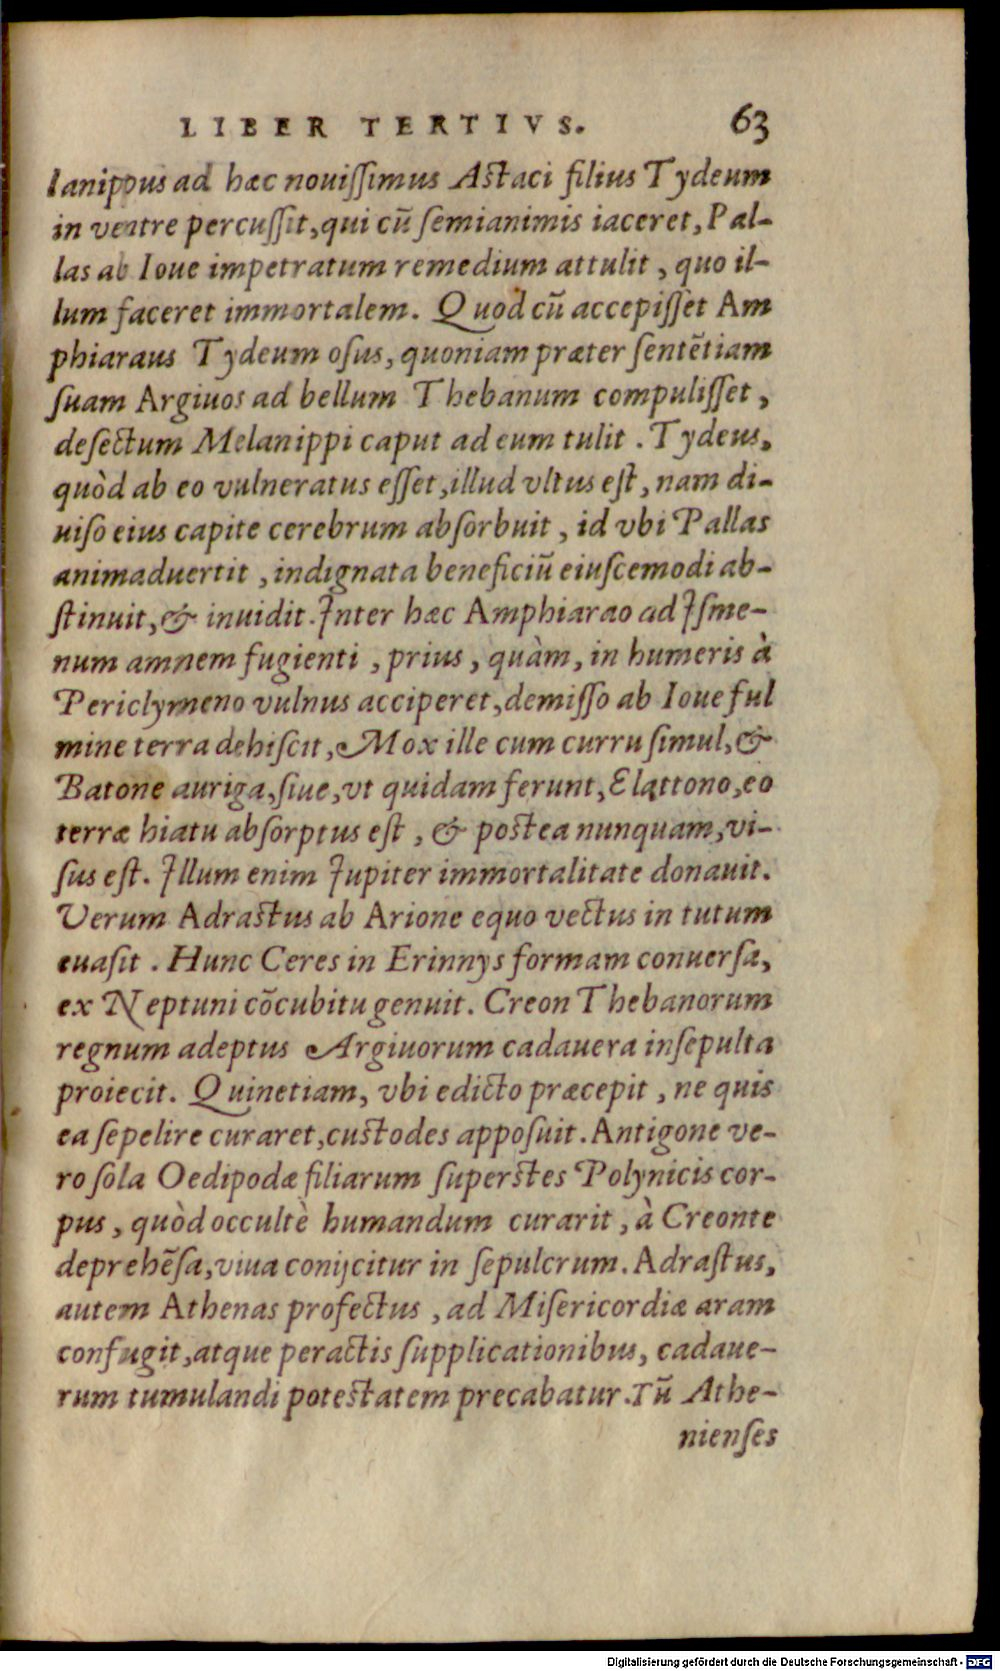 LIBER TERTIVS. 63
lanippus ad hæc nouiſſimus Aſtaci filius Tydeum
in ventre percuſſit, qui cū ſemianimis iaceret, Pal-
las ab Ioue impetratum remedium attulit, quo il-
lum faceret immortalem. Quod cū accepiſſet Am
phiaraus Tydeum oſus, quoniam præter ſentētiam
ſuam Argiuos ad bellum Thebanum compuliſſet,
deſectum Melanippi caput ad eum tulit. Tydeus,
quòd ab eo vulneratus eſſet, illud vltus eſt, nam di-
uiſo eius capite cerebrum abſorbuit, id vbi Pallas
animaduertit, indignata beneficiū eiuſcemodi ab-
ſtinuit, & inuidit. Inter hæc Amphiarao ad Iſme-
num amnem fugienti, prius, quàm, in humeris à
Periclymeno vulnus acciperet, demiſſo ab Ioue ful
mine terra dehiſcit, Mox ille cum curru ſimul, &
Batone auriga, ſiue, vt quidam ferunt, Elattono, eo
terræ hiatu abſorptus eſt, & poſtea nunquam, vi-
ſus eſt. Illum enim Iupiter immortalitate donauit.
Verum Adraſtus ab Arione equo vectus in tutum
euaſit. Hunc Ceres in Erinnys formam conuerſa,
ex Neptuni cōcubitu genuit. Creon Thebanorum
regnum adeptus Argiuorum cadauera inſepulta
proiecit. Quinetiam, vbi edicto præcepit, ne quis
ea ſepelire curaret, cuſtodes appoſuit. Antigone ve-
ro ſola Oedipodæ filiarum ſuperſtes Polynicis cor-
pus, quòd occultè humandum curarit, à Creonte
deprehēſa, viua conijcitur in ſepulcrum. Adraſtus,
autem Athenas profectus, ad Miſericordiæ aram
confugit, atque peractis ſupplicationibus, cadaue-
rum tumulandi poteſtatem precabatur. Tū Athe-
nienſes
Digitalisierung gefördert durch die Deutsche Forschungsgemeinschaft - DFG